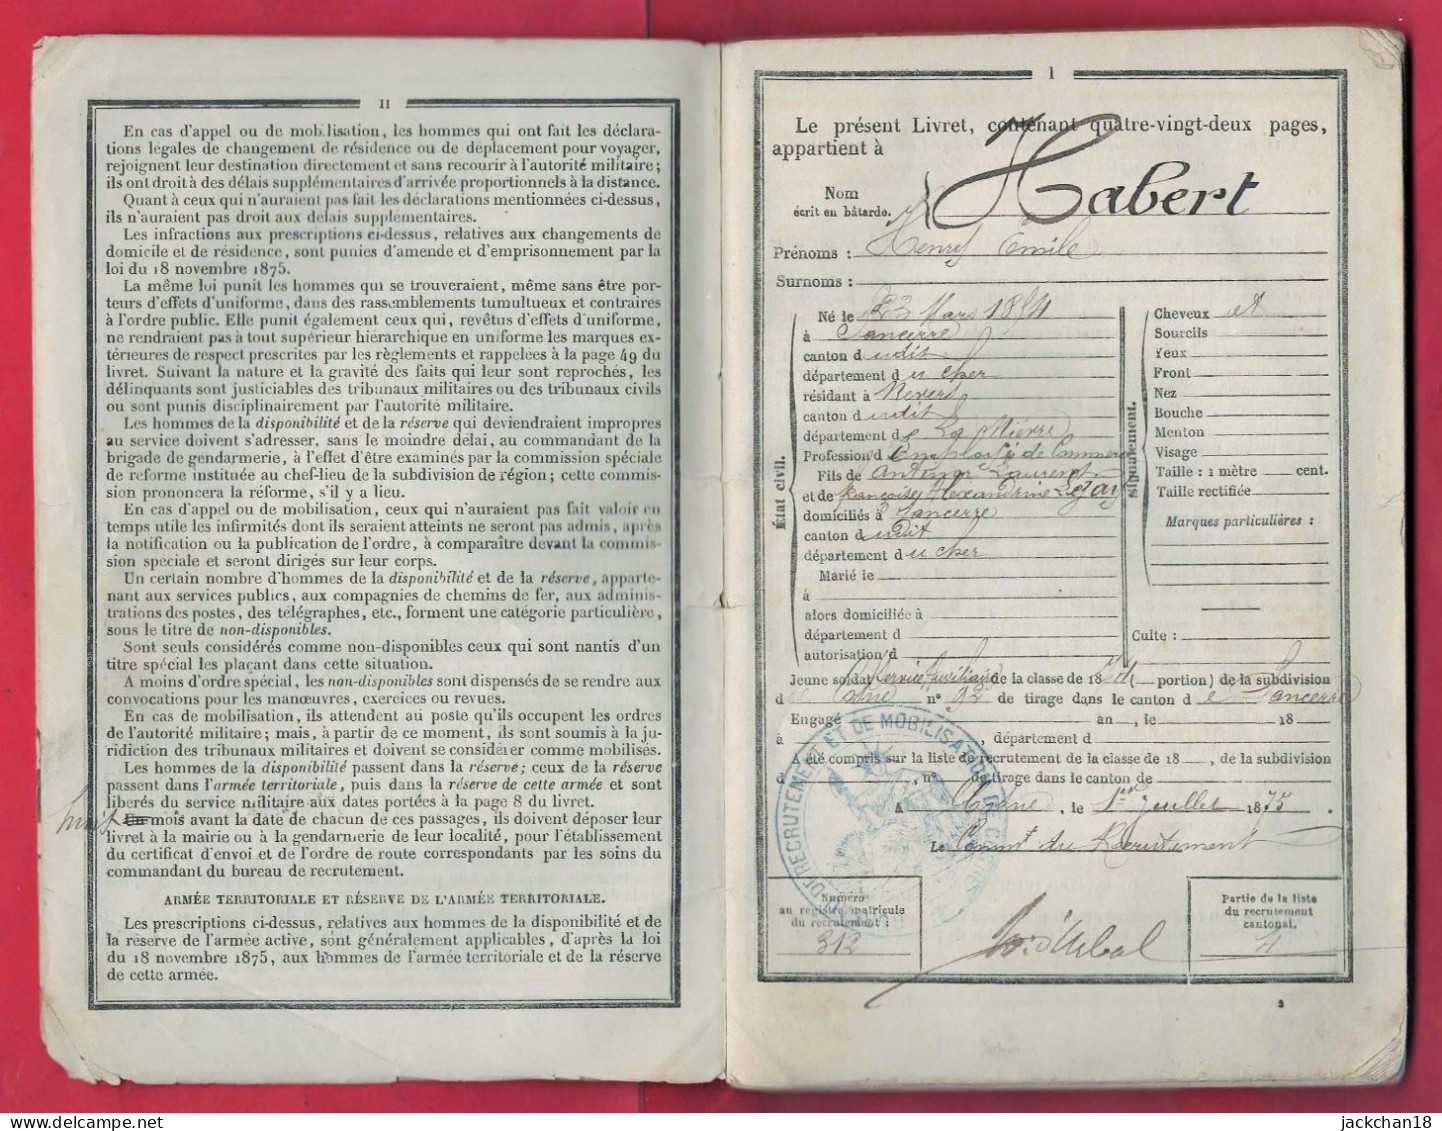 II
En cas d'appel ou de mobilisation, les hommes qui ont fait les déclara-
tions légales de changement de résidence ou de déplacement pour voyager,
rejoignent leur destination directement et sans recourir à l'autorité militaire;
ils ont droit à des délais supplémentaires d'arrivée proportionnels à la distance.
Quant à ceux qui n'auraient pas fait les déclarations mentionnées ci-dessus,
ils n'auraient pas droit aux délais supplémentaires.
Les infractions aux prescriptions ci-dessus, relatives aux changements de
domicile et de résidence, sont punies d'amende et d'emprisonnement par la
loi du 18 novembre 1875.
La même loi punit les hommes qui se trouveraient, même sans être por-
teurs d'effets d'uniforme, dans des rassemblements tumultueux et contraires
à l'ordre public. Elle punit également ceux qui, revêtus d'effets d'uniforme,
ne rendraient pas à tout supérieur hiérarchique en uniforme les marques ex-
térieures de respect prescrites par les règlements et rappelées à la page 49 du
livret. Suivant la nature et la gravité des faits qui leur sont reprochés, les
délinquants sont justiciables des tribunaux militaires ou des tribunaux civils
ou sont punis disciplinairement par l'autorité militaire.
Les hommes de la disponibilité et de la réserve qui deviendraient impropres
au service doivent s'adresser, sans le moindre délai, au commandant de la
brigade de gendarmerie, à l'effet d'être examinés par la commission spéciale
de réforme instituée au chef-lieu de la subdivision de région; cette commis-
sion prononcera la réforme, s'il y a lieu.
En cas d'appel ou de mobilisation, ceux qui n'auraient pas fait valoir en
temps utile les infirmités dont ils seraient atteints ne seront pas admis, après
la notification ou la publication de l'ordre, à comparaître devant la commis-
sion spéciale et seront dirigés sur leur corps.
Un certain nombre d'hommes de la disponibilité et de la réserve, apparte-
nant aux services publics, aux compagnies de chemins de fer, aux adminis-
trations des postes, des télégraphes, etc., forment une catégorie particulière,
sous le titre de non-disponibles.
Sont seuls considérés comme non-disponibles ceux qui sont nantis d'un
titre spécial les plaçant dans cette situation.
A moins d'ordre spécial, les non-disponibles sont dispensés de se rendre aux
convocations pour les manœuvres, exercices ou revues.
En cas de mobilisation, ils attendent au poste qu'ils occupent les ordres
de l'autorité militaire; mais, à partir de ce moment, ils sont soumis à la ju-
ridiction des tribunaux militaires et doivent se considérer comme mobilisés.
Les hommes de la disponibilité passent dans la réserve; ceux de la réserve
passent dans l'armée territoriale, puis dans la réserve de cette armée et sont
libérés du service militaire aux dates portées à la page 8 du livret.
huit Un mois avant la date de chacun de ces passages, ils doivent déposer leur
livret à la mairie ou à la gendarmerie de leur localité, pour l'établissement
du certificat d'envoi et de l'ordre de route correspondants par les soins du
commandant du bureau de recrutement.
ARMÉE TERRITORIALE ET RÉSERVE DE L'ARMÉE TERRITORIALE.
Les prescriptions ci-dessus, relatives aux hommes de la disponibilité et de
la réserve de l'armée active, sont généralement applicables, d'après la loi
du 18 novembre 1875, aux hommes de l'armée territoriale et de la réserve
de cette armée.
1
Le présent Livret, contenant quatre-vingt-deux pages,
appartient à
Nom
écrit en bâtarde. Habert
Prénoms : Henry Emile
Surnoms :
État civil.
Né le 23 Mars 1854
à Sancerre
canton dudit
département du Cher
résidant à Nevers
canton dudit
département de La Nièvre
Profession d'Employé de Commerce
Fils de Antenor Laurent
et de françoise Alexandrine Lejay
domiciliés à Sancerre
canton dudit
département du Cher
Marié le
à
alors domiciliée à
département d
autorisation d
Signalement.
Cheveux et
Sourcils
Yeux
Front
Nez
Bouche
Menton
Visage
Taille : 1 mètre cent.
Taille rectifiée
Marques particulières :
Culte :
Jeune soldat Service Auxiliaire de la classe de 1874 (— portion) de la subdivision
de Cosne n° 92 de tirage dans le canton de Sancerre
Engagé an , le 18
à , département d
A été compris sur la liste de recrutement de la classe de 18 , de la subdivision
d , n° de tirage dans le canton de
A Cosne , le 1er Juillet 1875.
Le Commt du Recrutement
RECRUTEMENT ET DE MOBILISATION DE COSNE
Numéro
au registre matricule
du recrutement :
312
Partie de la liste
du recrutement
cantonal.
4
2
jackchan18